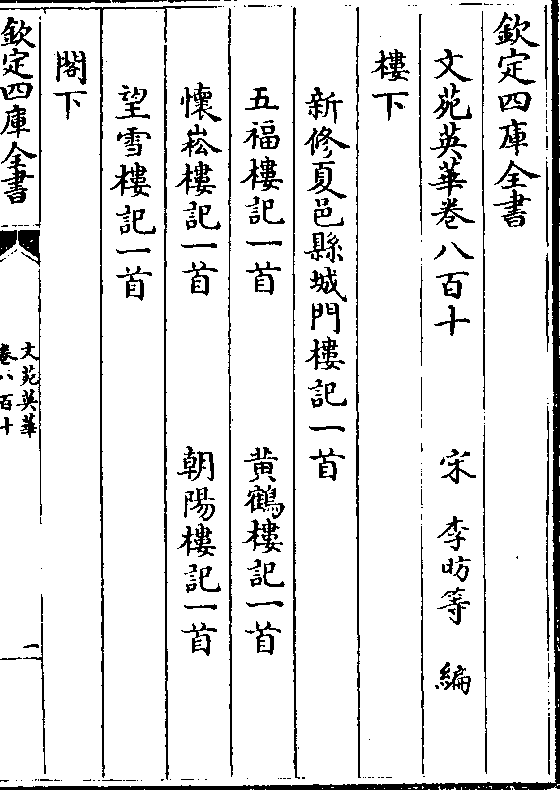 欽定四庫全書
文苑英華卷八百十　　宋　李昉等　編
樓下
新修夏邑縣城門樓記一首
五福樓記一首　　黃鶴樓記一首
懷崧樓記一首　　朝陽樓記一首
望雪樓記一首
閣下
欽定四庫全書
文苑英華
卷八百十
一